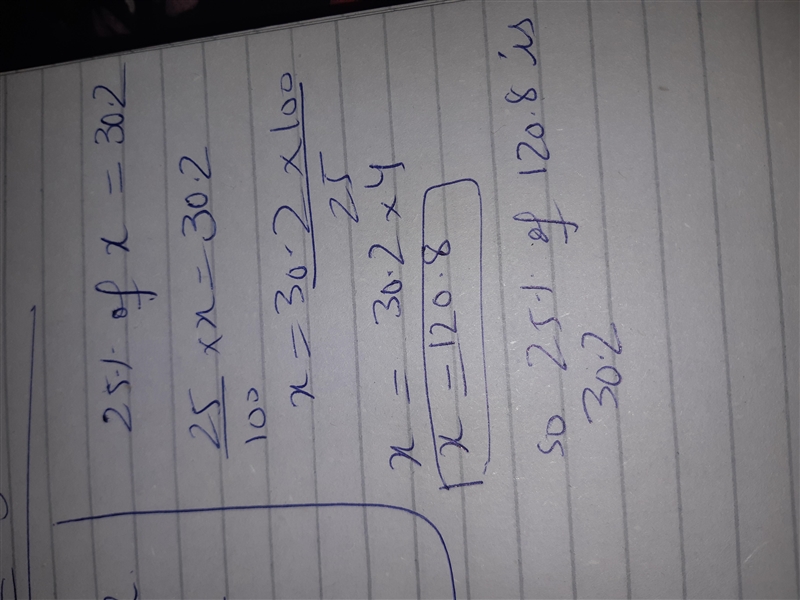 25% of x = 30.2
25/100 × x = 30.2
x = 30.2 × 100/25
x = 30.2 × 4
x = 120.8
so 25% of 120.8 is
30.2